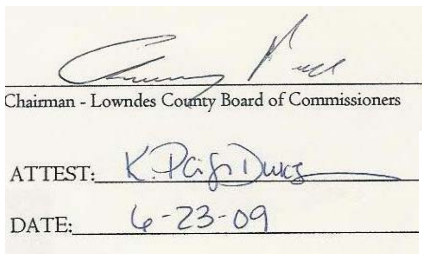 Chairman - Lowndes County Board of Commissioners
ATTEST: K. Paige Dukes
DATE: 6-23-09